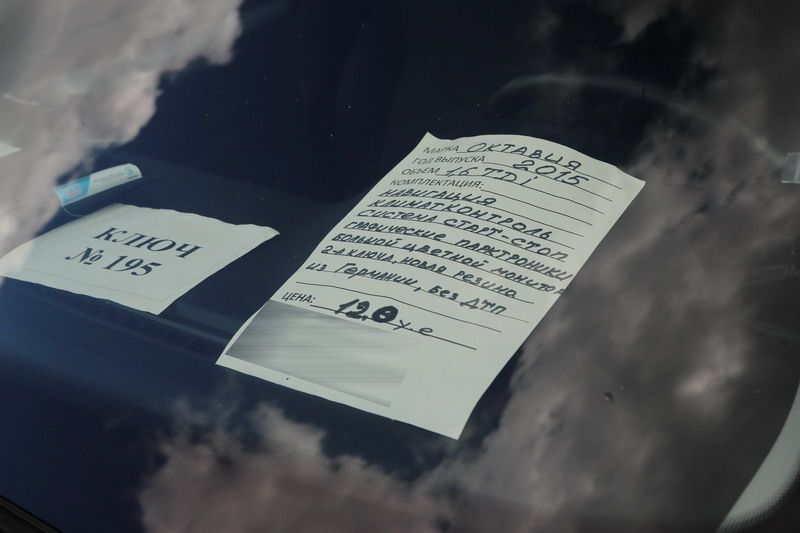 КЛЮЧ
№ 195
МАРКА ОКТАВИЯ
ГОД ВЫПУСКА 2015
ОБЪЕМ 1,6 TDi
КОМПЛЕКТАЦИЯ:
НАВИГАЦИЯ
КЛИМАТКОНТРОЛЬ
СИСТЕМА СТАРТ-СТОП
ГРАФИЧЕСКИЕ ПАРКТРОНИКИ
БОЛЬШОЙ ЦВЕТНОЙ МОНИТОР
2-а КЛЮЧА, НОВАЯ РЕЗИНА
ИЗ ГЕРМАНИИ, БЕЗ ДТП
ЦЕНА: 12.0 у е